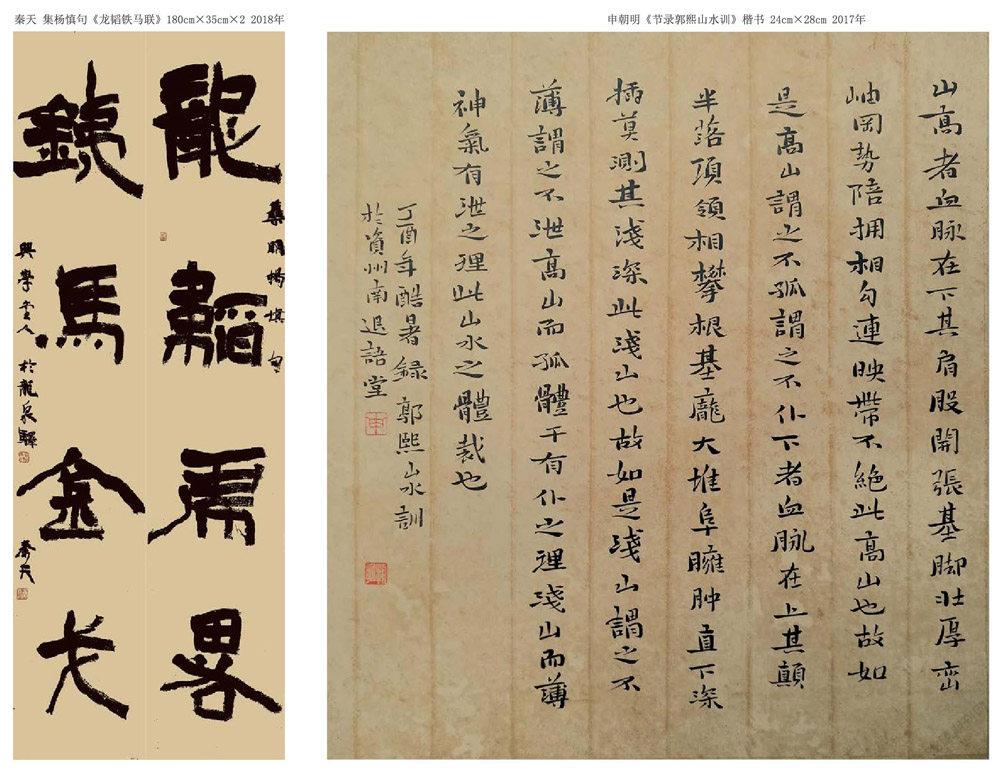 秦天 集杨慎句《龙韬铁马联》180cm×35cm×2 2018年
龍韜虎畧
集明楊慎句
銕馬金戈
興學堂人於龍泉驛
秦天
申朝明《节录郭熙山水训》楷书 24cm×28cm 2017年
山高者血脉在下其肩股開張基脚壯厚巒
岫岡勢陪拥相勾連映帶不絕此高山也故如
是高山謂之不孤謂之不仆下者血脉在上其顛
半落項領相攀根基龐大堆阜臃肿直下深
插莫測其淺深此淺山也故如是淺山謂之不
薄謂之不泄高山而孤體干有仆之理淺山而薄
神氣有泄之理此山水之體裁也
丁酉年酷暑録郭熙山水訓
於資州南退語堂